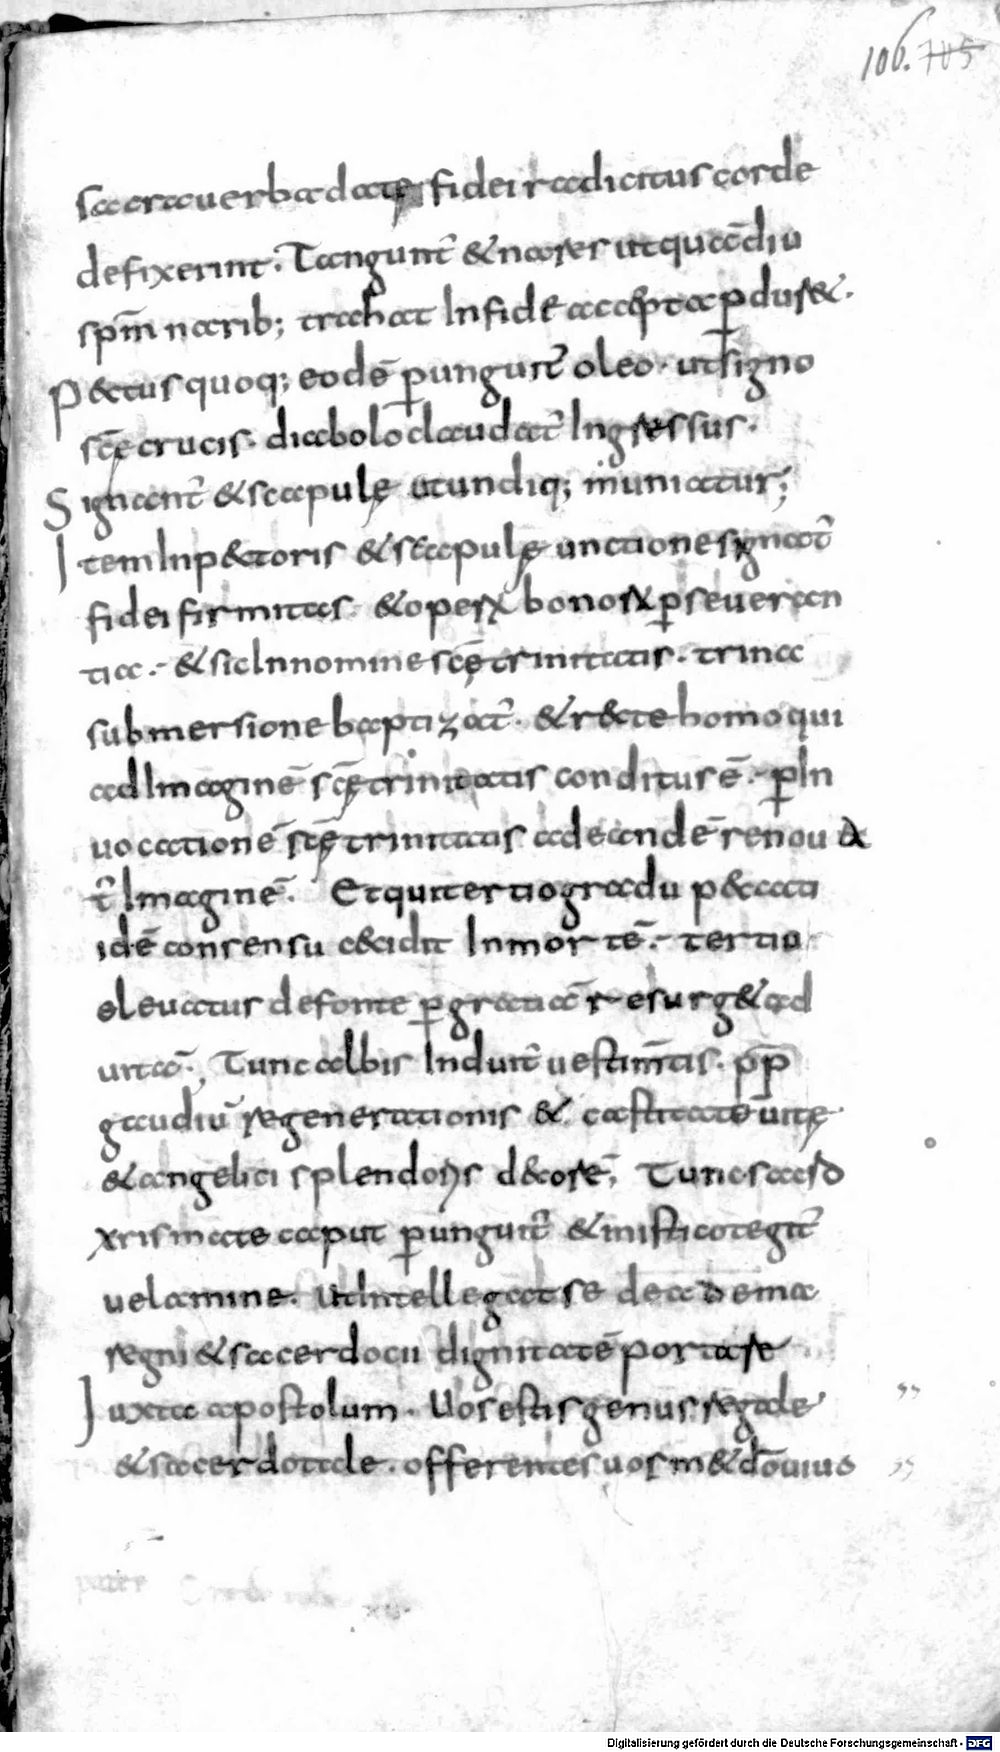 106. 705
sacra uerba datę fidei radicitus corde
defixerint; Tangunt̄ & nares ut quādiu
spm̄ narib; trahat In fidē accęptā ꝑdur&.
P&tus quoq; eodē ꝑungunt̄ oleo. ut signo
scę̄ crucis. diabolo claudat̄ Ingressus.
Signant̄ & scapulę ut undiq; muniatur;
Item In p&toris & scapulę unctione signat̄
fidei firmitas. & operꝝ bonorꝝ ꝑseueran
tia. & sic In nomine scę̄ trinitatis. trina
submersione baptizat̄. & r&te homo qui
ad Imaginē scę̄ trinitatis conditus ē. ꝑ In
uocationē scę̄ trinitatis ad eandē renoua
t̄ Imaginē. Et qui tertio gradu p&cati
idē consensu c&idit In mortē. tertio
eleuatus de fonte ꝑ gratiā resurg& ad
uitā; Tunc albis Induit̄ uestim̄tis. ꝓp̄
gaudiū regenerationis & castitatē uitę
& angelici splendoris d&orē; Tunc sacro
xrismate caput ꝑunguit̄ & mistico tegit̄
uelamine. Ut Intellegat se deadema
regni & sacerdotii dignitatē portare
Iuxta apostolum. Uos estis genus regale ”
& sacerdotale. offerentes uosm& dō uiuo ”
pater
Digitalisierung gefördert durch die Deutsche Forschungsgemeinschaft - DFG